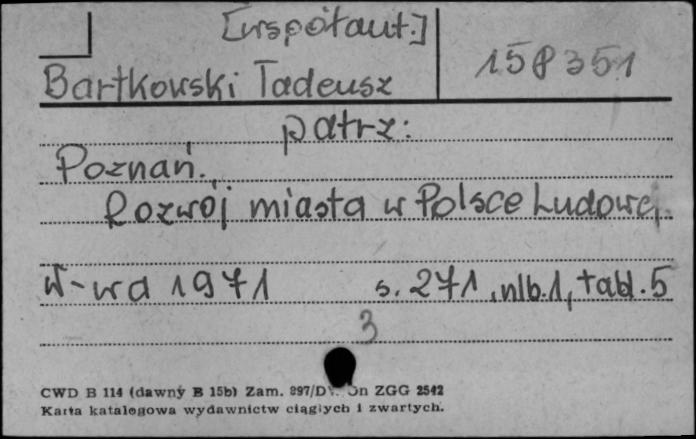 [współaut.]
Bartkowski Tadeusz
158351
patrz:
Poznań.
Rozwój miasta w Polsce Ludowej.
W-wa 1971 s. 271, nlb. 1, tabl. 5
3
CWD B 114 (dawny B 15b) Zam. 897/D ZGG 2542
Karta katalogowa wydawnictw ciągłych i zwartych.